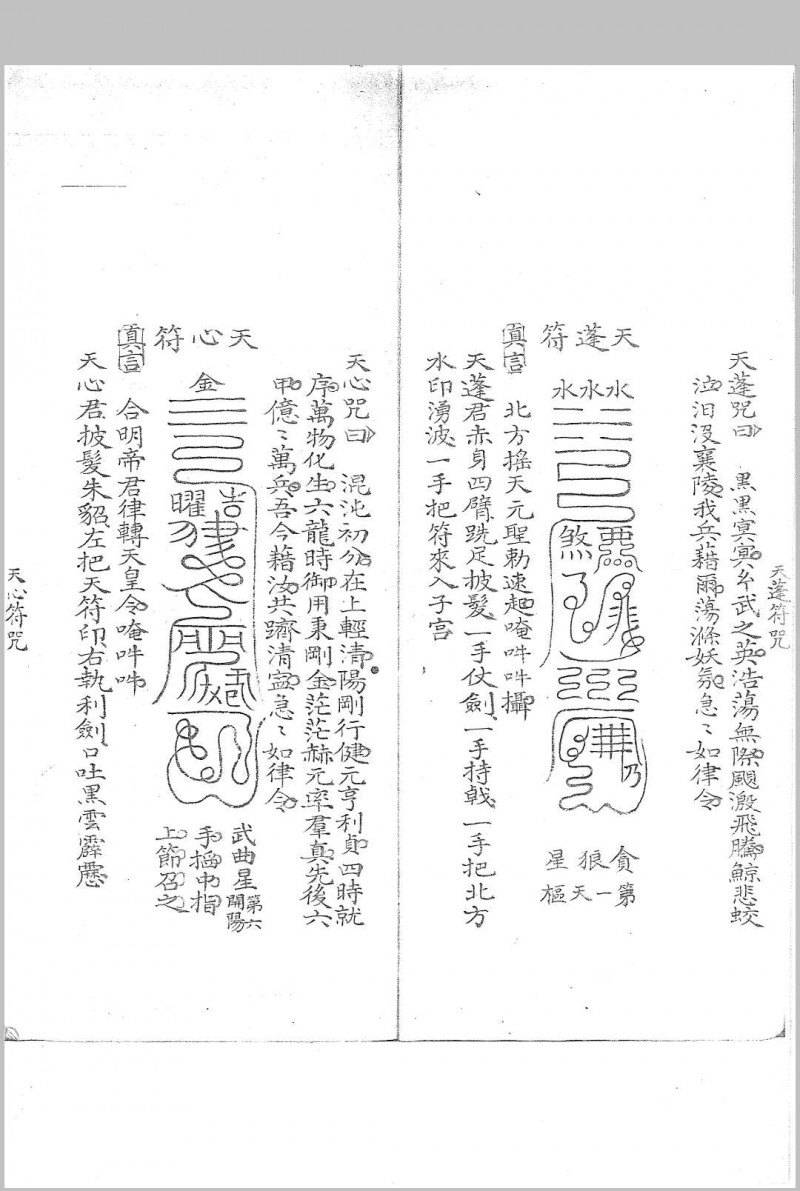 天蓬符咒
天蓬咒曰 黑黑冥冥 武之英浩蕩無際颶激飛騰鯨悲蛟
泣汨没襄陵我兵藉爾蕩滌妖氛急〻如律令
天蓬符
水水水
惡
煞
乃
貪狼星
第一天樞
真言 北方搖天元聖勅速起唵吽吽攝
天蓬君赤身四臂跣足披髮一手仗劍一手持戟一手把北方
水印湧波一手把符來入子宮
天心咒曰 混沌初分在上輕清陽剛行健元亨利貞四時就
序萬物化生六龍時御用秉剛金茫茫赫元率羣真先後六
甲億〻萬兵吾今藉汝共躋清寍急〻如律令
天心符
金
吉
曜
武曲星第六開陽
手掐中指
上節召之
真言 合明帝君律轉天皇令唵吽吽
天心君披髮朱貂左把天符印右執利劍口吐黑雲霹靂
天心符咒